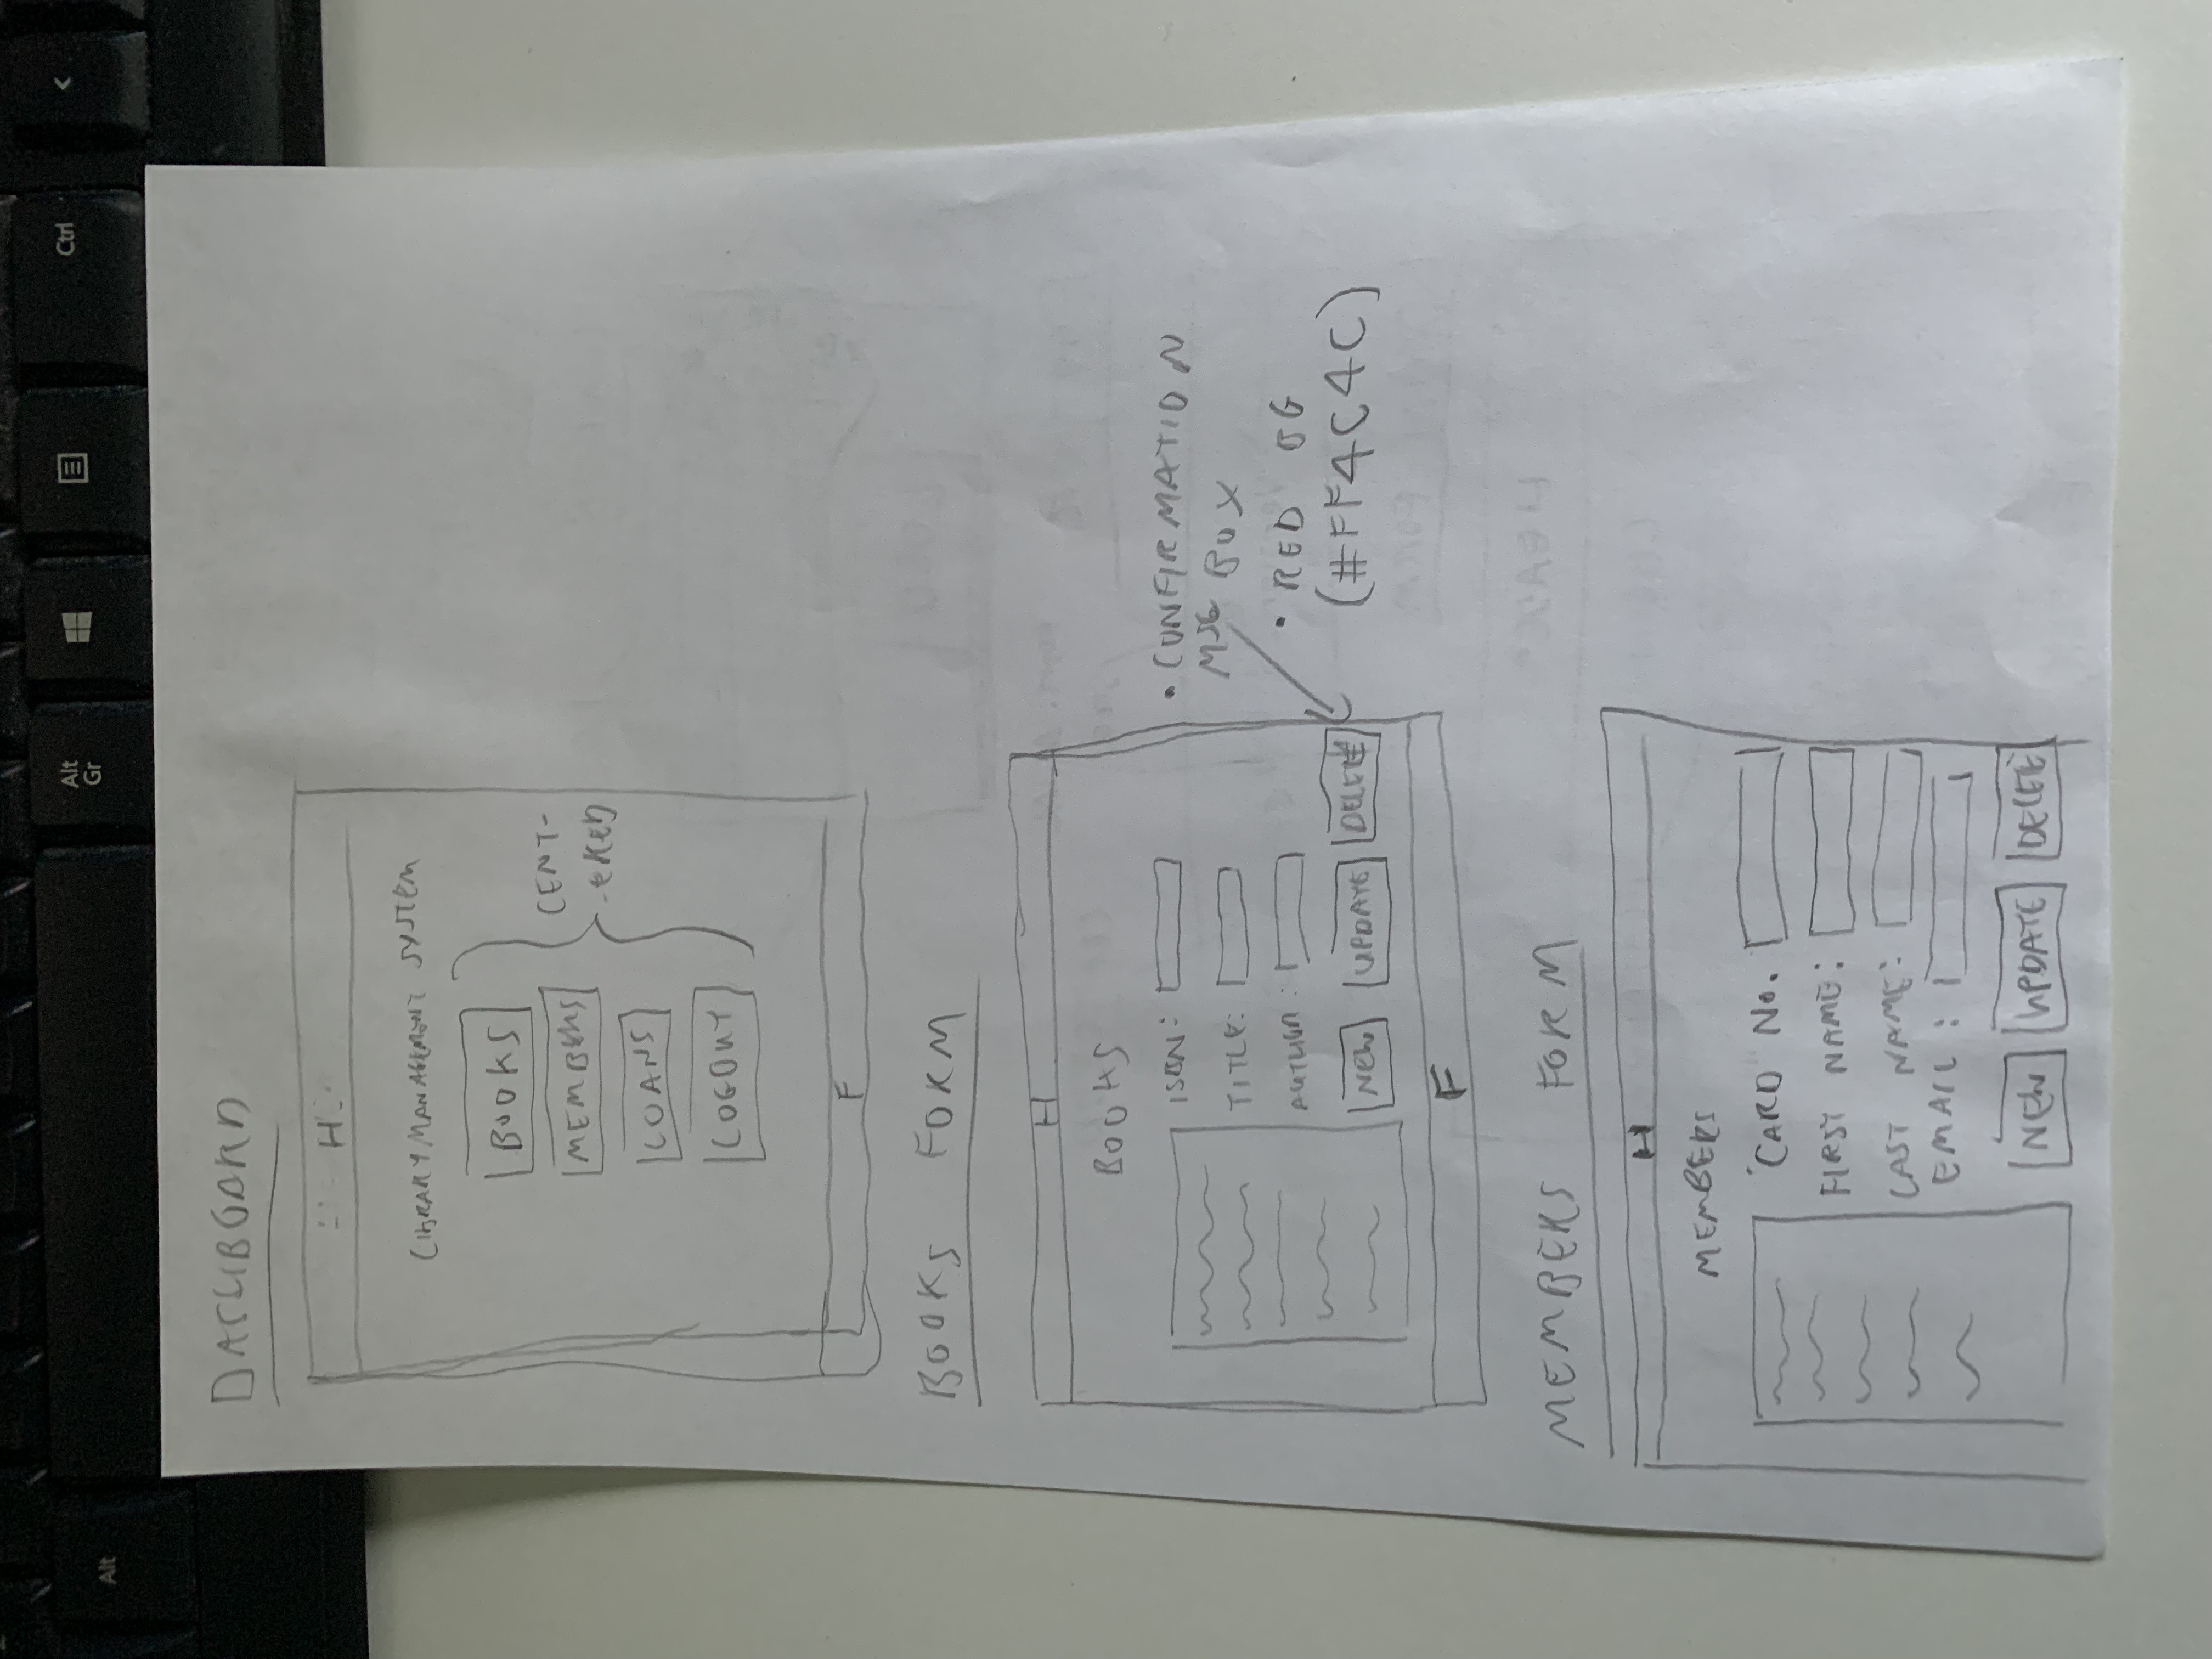 Alt
Alt Gr
Ctrl
<
DASHBOARD
H
LIBRARY MANAGEMENT SYSTEM
BOOKS
MEMBERS
LOANS
LOGOUT
CENT-
-ERED
F
BOOKS FORM
H
BOOKS
ISBN:
TITLE:
AUTHOR:
NEW UPDATE DELETE
• CONFIRMATION
MSG BOX
• RED BG
(#FF4C4C)
F
MEMBERS FORM
H
MEMBERS
CARD No.
FIRST NAME:
LAST NAME:
EMAIL:
NEW UPDATE DELETE